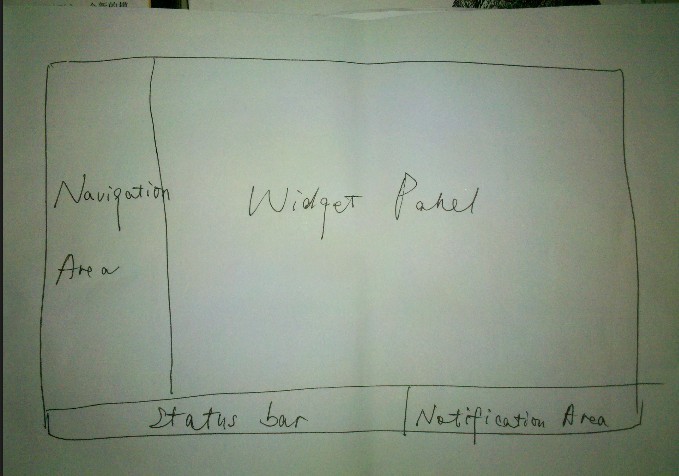 Navigation
Area
Widget Panel
Status bar
Notification Area